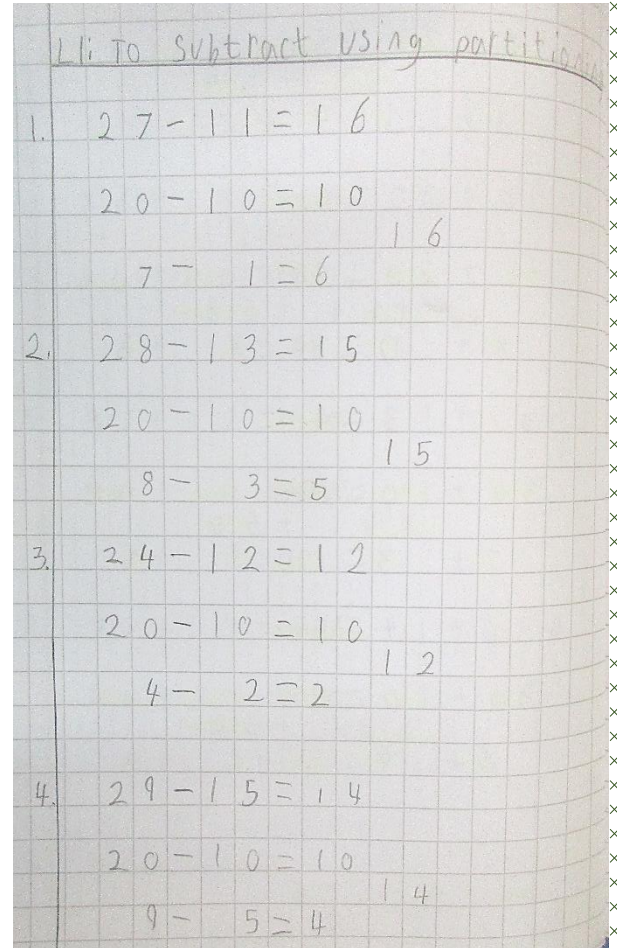 LI: To subtract using partitioning
1. 27-11=16
20-10=10
16
7- 1=6
2. 28-13=15
20-10=10
15
8- 3=5
3. 24-12=12
20-10=10
12
4- 2=2
4. 29-15=14
20-10=10
14
9- 5=4